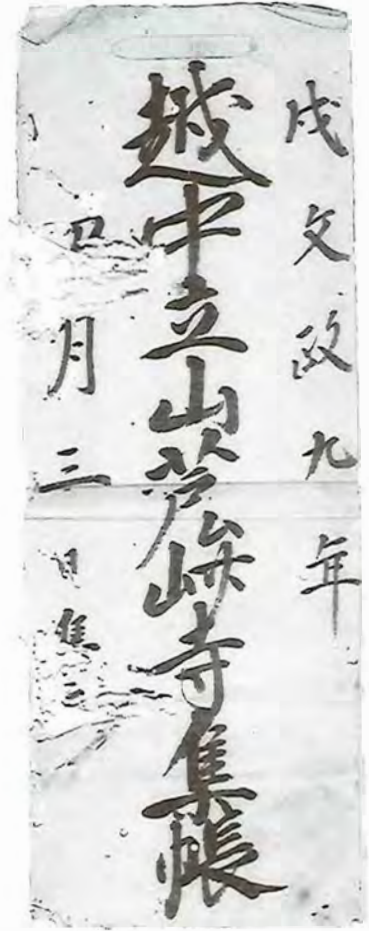 戌文政九年
越中立山芦峅寺集帳
四月三日集